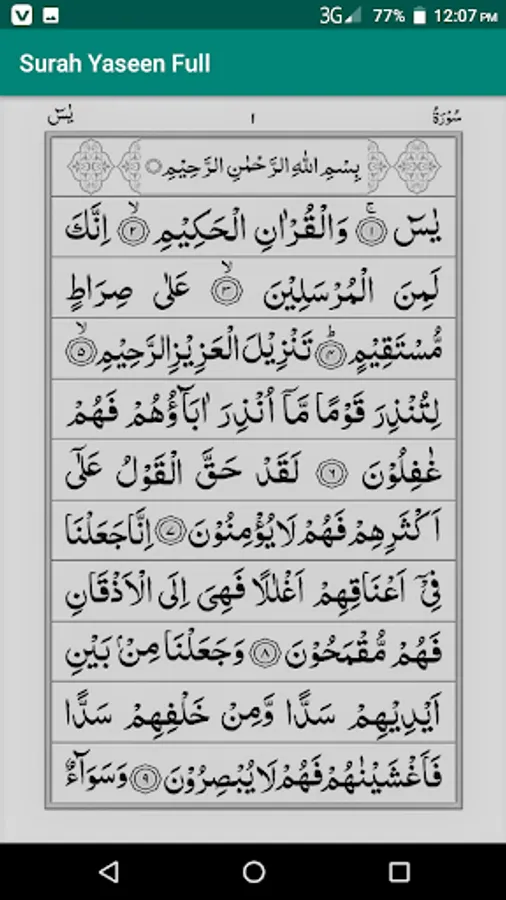 3G 77% 12:07 PM
Surah Yaseen Full
سُوْرَةُ ١ يٰسٓ
بِسْمِ اللّٰهِ الرَّحْمٰنِ الرَّحِيْمِ
يٰسٓ ۚ﴿١﴾ وَالْقُرْاٰنِ الْحَكِيْمِ ۙ﴿٢﴾ اِنَّكَ
لَمِنَ الْمُرْسَلِيْنَ ۙ﴿٣﴾ عَلٰى صِرَاطٍ
مُّسْتَقِيْمٍ ؕ﴿٤﴾ تَنْزِيْلَ الْعَزِيْزِ الرَّحِيْمِ ۙ﴿٥﴾
لِتُنْذِرَ قَوْمًا مَّاۤ اُنْذِرَ اٰبَآؤُهُمْ فَهُمْ
غٰفِلُوْنَ ﴿٦﴾ لَقَدْ حَقَّ الْقَوْلُ عَلٰٓى
اَكْثَرِهِمْ فَهُمْ لَا يُؤْمِنُوْنَ ﴿٧﴾ اِنَّا جَعَلْنَا
فِيْۤ اَعْنَاقِهِمْ اَغْلٰلًا فَهِيَ اِلَى الْاَذْقَانِ
فَهُمْ مُّقْمَحُوْنَ ﴿٨﴾ وَجَعَلْنَا مِنْۢ بَيْنِ
اَيْدِيْهِمْ سَدًّا وَّمِنْ خَلْفِهِمْ سَدًّا
فَاَغْشَيْنٰهُمْ فَهُمْ لَا يُبْصِرُوْنَ ﴿٩﴾ وَسَوَآءٌ